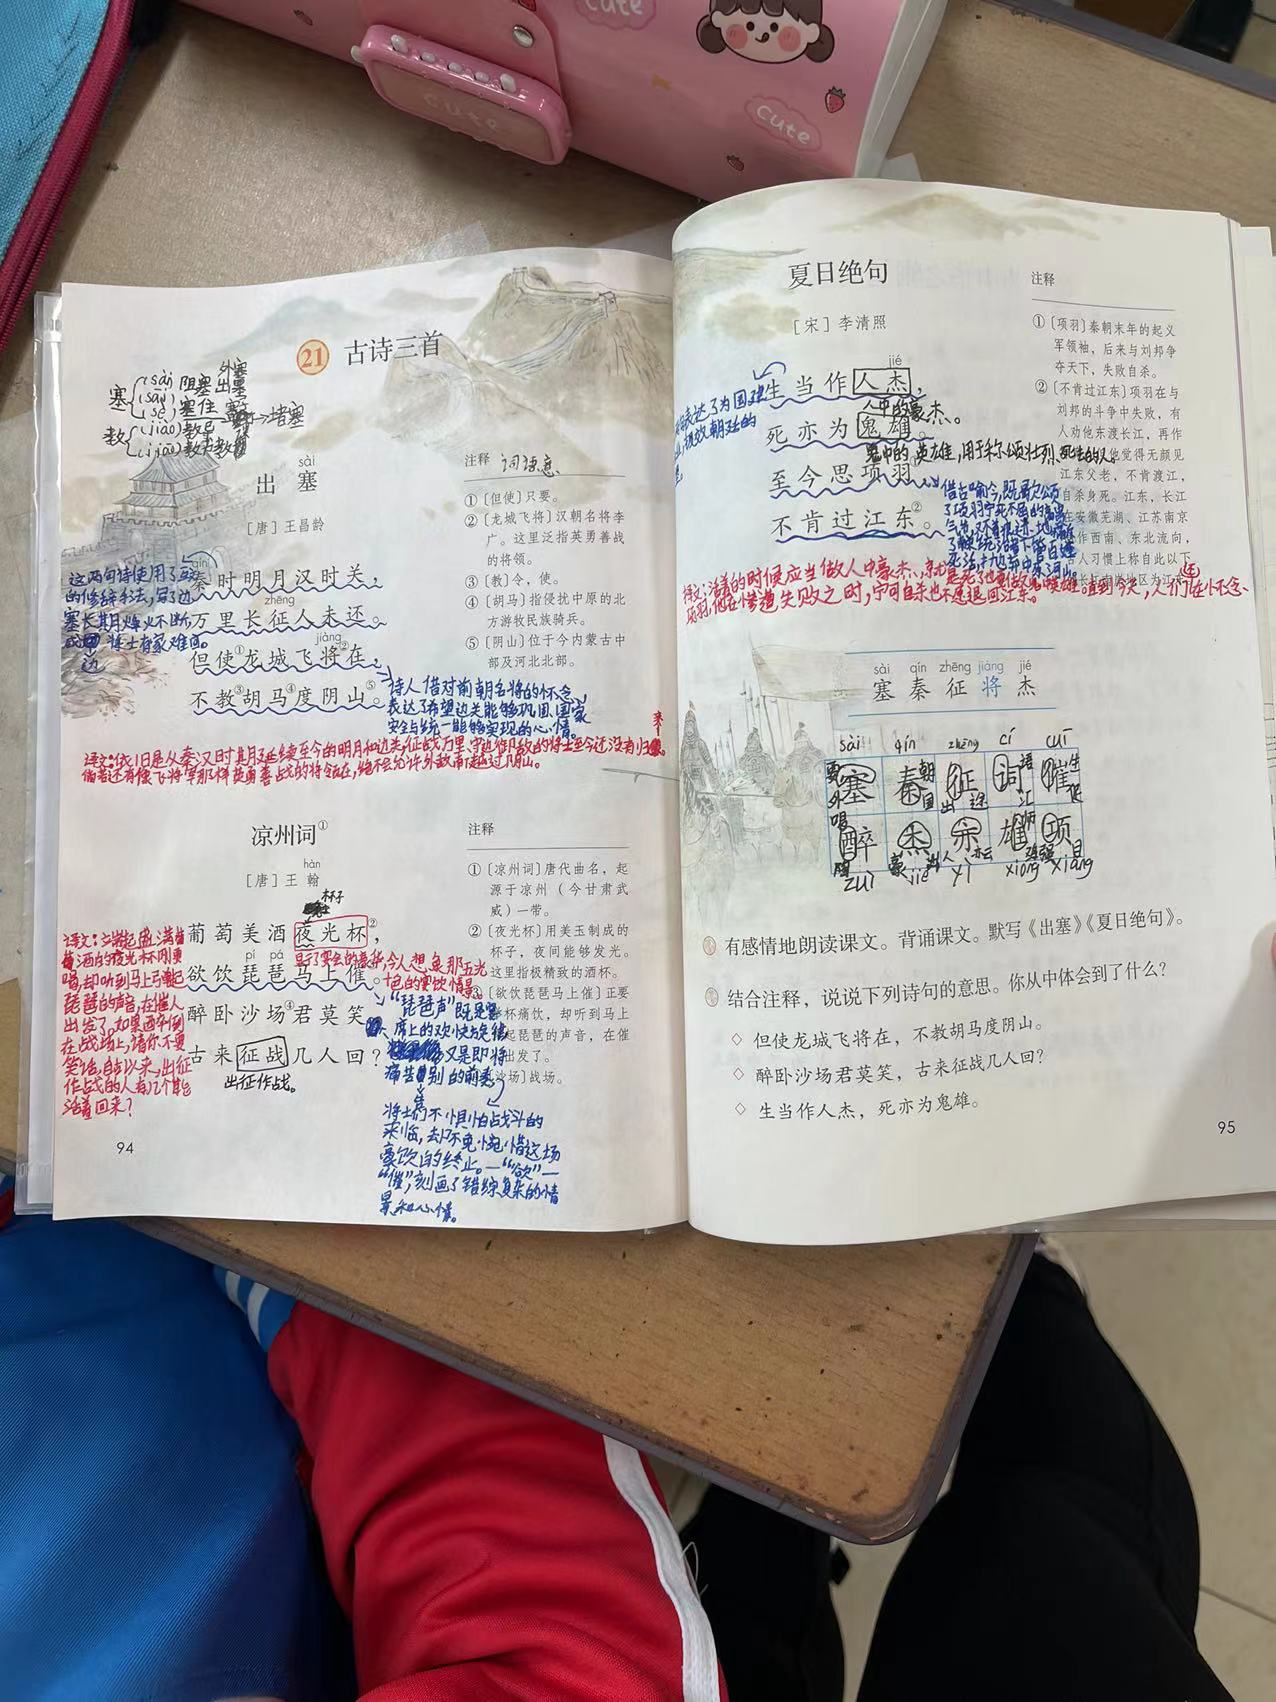 cute
cute
cute
21 古诗三首
外塞
塞 (sài) 阻塞 出塞
(sāi) 塞住
(sè) →堵塞
教 (jiào)
(jiāo)
sài
出 塞
[唐] 王昌龄
qín
秦时明月汉时关,
zhēng
万里长征人未还。
jiàng
但使①龙城飞将②在,
不教③胡马④度阴山⑤。
注释 词语意
①〔但使〕只要。
②〔龙城飞将〕汉朝名将李
广。这里泛指英勇善战
的将领。
③〔教〕令，使。
④〔胡马〕指侵扰中原的北
方游牧民族骑兵。
⑤〔阴山〕位于今内蒙古中
部及河北北部。
这两句诗使用了互文
的修辞手法，写了边
塞长期烽火不断,
将士有家难回。
边
诗人借对前朝名将的怀念
表达了希望边关能够巩固、国家
安全与统一能够实现的心情。
译文:依旧是从秦汉时期延续至今的明月和边关,征战万里、守边御敌的将士至今还没有归来。
倘若还有像飞将军那样英勇善战的将领在,绝不会允许外敌南下越过阴山。
凉州词①
hàn
[唐] 王 翰
杯子
葡萄美酒夜光杯②,
pí pá
欲饮琵琶马上催③。
醉卧沙场④君莫笑,
古来征战几人回?
出征作战。
注释
①〔凉州词〕唐代曲名，起
源于凉州（今甘肃武
威）一带。
②〔夜光杯〕用美玉制成的
杯子，夜间能够发光。
这里指极精致的酒杯。
③〔欲饮琵琶马上催〕正要
杯痛饮，却听到马上
起琵琶的声音，在催
出发了。
沙场〕战场。
译文:立端起盛满葡
萄酒的夜光杯刚要
喝,却听到马上弹起
琵琶的声音,在催人
出发了。如果醉倒
在战场上,请你不要
笑话,自古以来,出征
作战的人有几个能
活着回来?
显示了宴会的豪华,令人想象那五光
十色的宴饮情景。
“琵琶声”既是宴
席上的欢快旋律
又是即将
痛苦别的前奏
将士们不惧怕战斗的
来临,却不免惋惜这场
豪饮的终止。一“欲”一
“催”,刻画了错综复杂的情
景和心情。
94
夏日绝句
[宋] 李清照
jié
生当作人杰,
人中的豪杰。
死亦为鬼雄。
鬼中的英雄,用于称颂壮烈死去的人。
至今思项羽①,
不肯过江东②。
表达了为国建
业,报效朝廷的
注释
①〔项羽〕秦朝末年的起义
军领袖，后来与刘邦争
夺天下，失败自杀。
②〔不肯过江东〕项羽在与
刘邦的斗争中失败，有
人劝他东渡长江，再作
他觉得无颜见
江东父老，不肯渡江，
自杀身死。江东，长江
在安徽芜湖、江苏南京
作西南、东北流向，
人习惯上称自此以下
借古喻今,既歌颂
了项羽宁死不屈的
译文:活着的时候应当做人中豪杰,就是死了也要做鬼中英雄。直到今天,人们还在怀念
项羽,他在惨遭失败之时,宁可自杀也不愿退回江东。
sài qín zhēng jiàng jié
塞 秦 征 将 杰
sài qín zhēng cí cuī
塞 秦 征 词 催
醉 杰 亦 雄 项
zuì jié yì xióng xiàng
有感情地朗读课文。背诵课文。默写《出塞》《夏日绝句》。
结合注释，说说下列诗句的意思。你从中体会到了什么？
◇ 但使龙城飞将在，不教胡马度阴山。
◇ 醉卧沙场君莫笑，古来征战几人回？
◇ 生当作人杰，死亦为鬼雄。
95